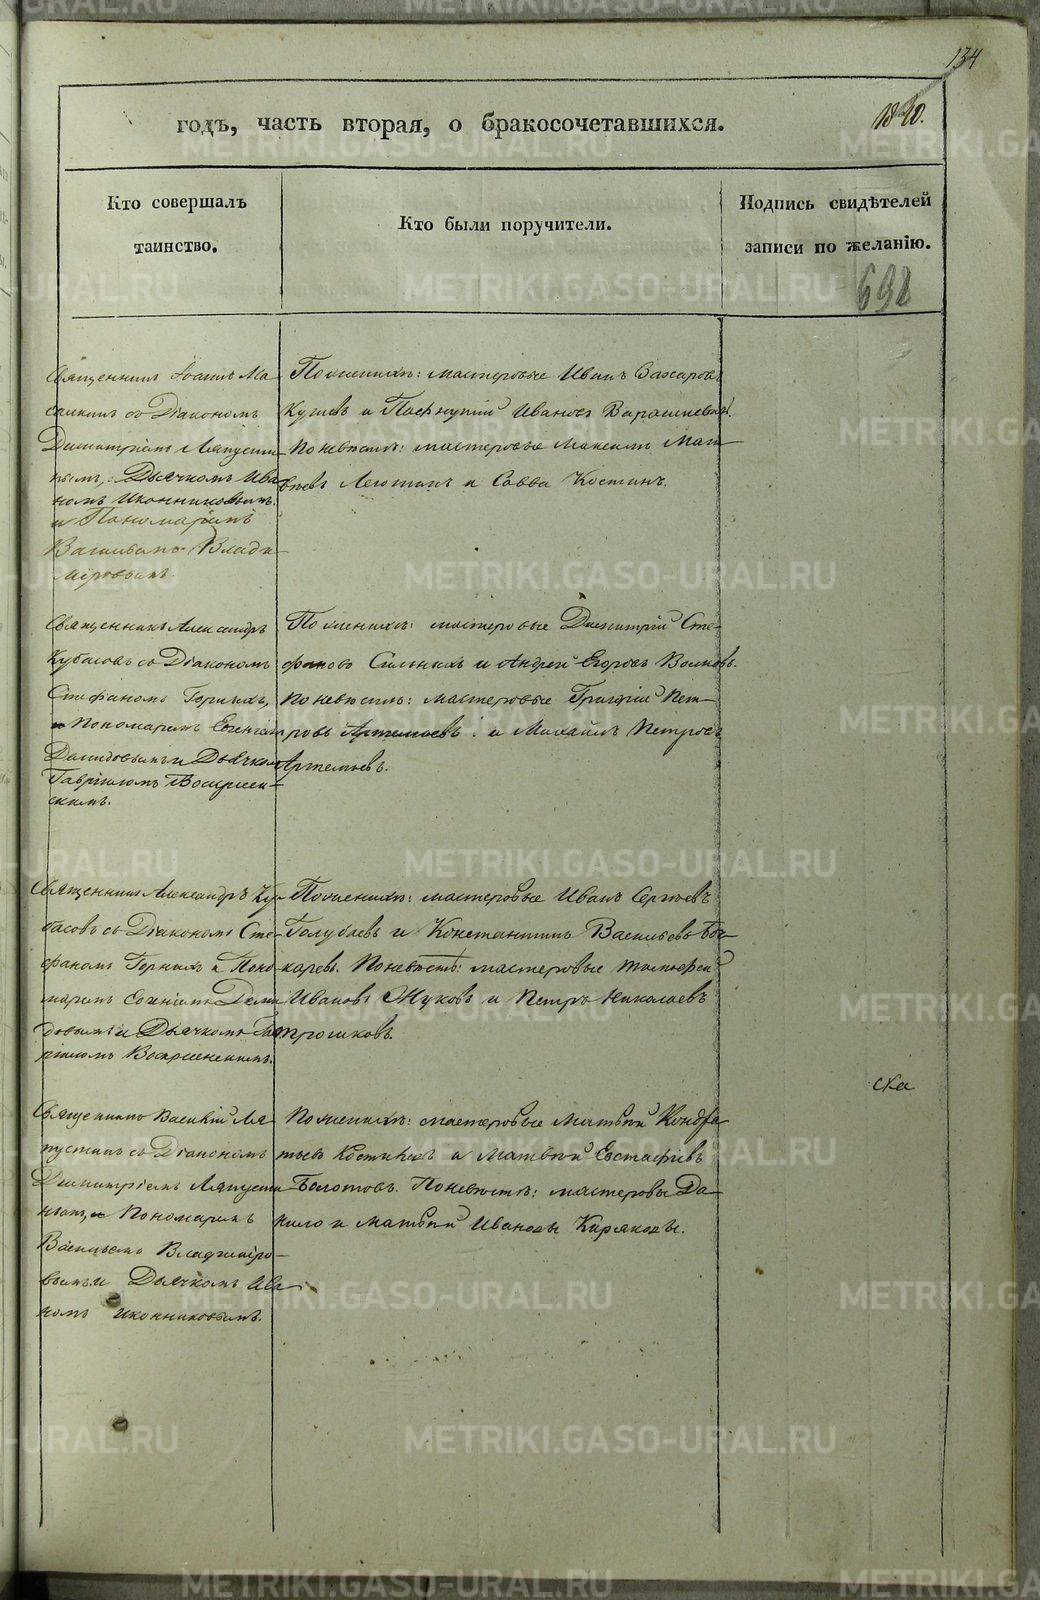 134
годъ, часть вторая, о бракосочетавшихся.
1840.
Кто совершалъ
таинство.
Кто были поручители.
Подпись свидѣтелей
записи по желанію.
698
Священникъ Іоаннъ Ма-
съ Діакономъ
Димитріемъ Ляпусти-
нымъ, Дьячкомъ Ива
номъ Иконниковымъ.
и Пономаремъ
Васильемъ Влади
міровымъ.
По женихѣ: мастеровые Иванъ
и Пафнутій Ивановъ
По невѣстѣ: мастеровые Максимъ Мат-
вѣевъ и Савва Костинъ.
Священникъ Александръ
Кубасовъ съ Діакономъ
Стефаномъ Горныхъ,
и Пономаремъ Евгеніем
Демидовымъ и Дьячком
Гавріиломъ Воскресен-
скимъ.
По женихѣ: мастеровые Димитрій Сте-
фановъ Сильныхъ и Андрей Егоровъ Волковъ.
По невѣстѣ: мастеровые Григорій Пет-
ровъ Артемьевъ: и Михайлъ Петровъ
Артемьевъ.
Священникъ Александръ Ку-
басовъ съ Діакономъ Сте-
фаномъ Горныхъ и Поно
маремъ Евгеніемъ Деми
довымъ и Дьячкомъ Гав
ріиломъ Воскресенскимъ.
По женихѣ: мастеровые Иванъ Сергѣевъ
Голубаевъ и Константинъ Васильевъ Боч-
каревъ. По невѣстѣ: мастеровые Тимофей
Ивановъ Жуковъ и Петръ Николаевъ
Трошковъ.
ска
Священникъ Василій Ля-
пустинъ съ Діакономъ
Димитріемъ Ляпусти
нымъ, и Пономаремъ
Васильемъ Владиміро-
вымъ и Дьячкомъ Ива
номъ Иконниковымъ.
По женихѣ: мастеровые Матвѣй Кондра
тьевъ и Матвѣй Евстафіевъ
Болотовъ. По невѣстѣ: мастеровые Да-
нило и Матвѣй Ивановы Кирьяковы.
METRIKI.GASO-URAL.RU